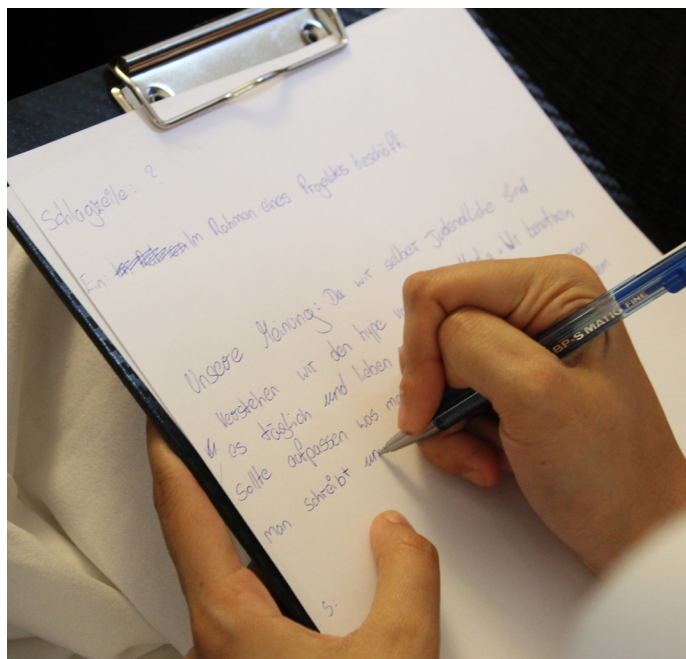 Schlagzeile: ?
Ein Im Rahmen eines Projektes beschäft
Unsere Meinung: Da wir selber Jugendliche sind
verstehen wir den hype Wir benutzen
es täglich und lieben
Sollte aufpassen was
man schreibt un
S.
BP-S MATIC FINE